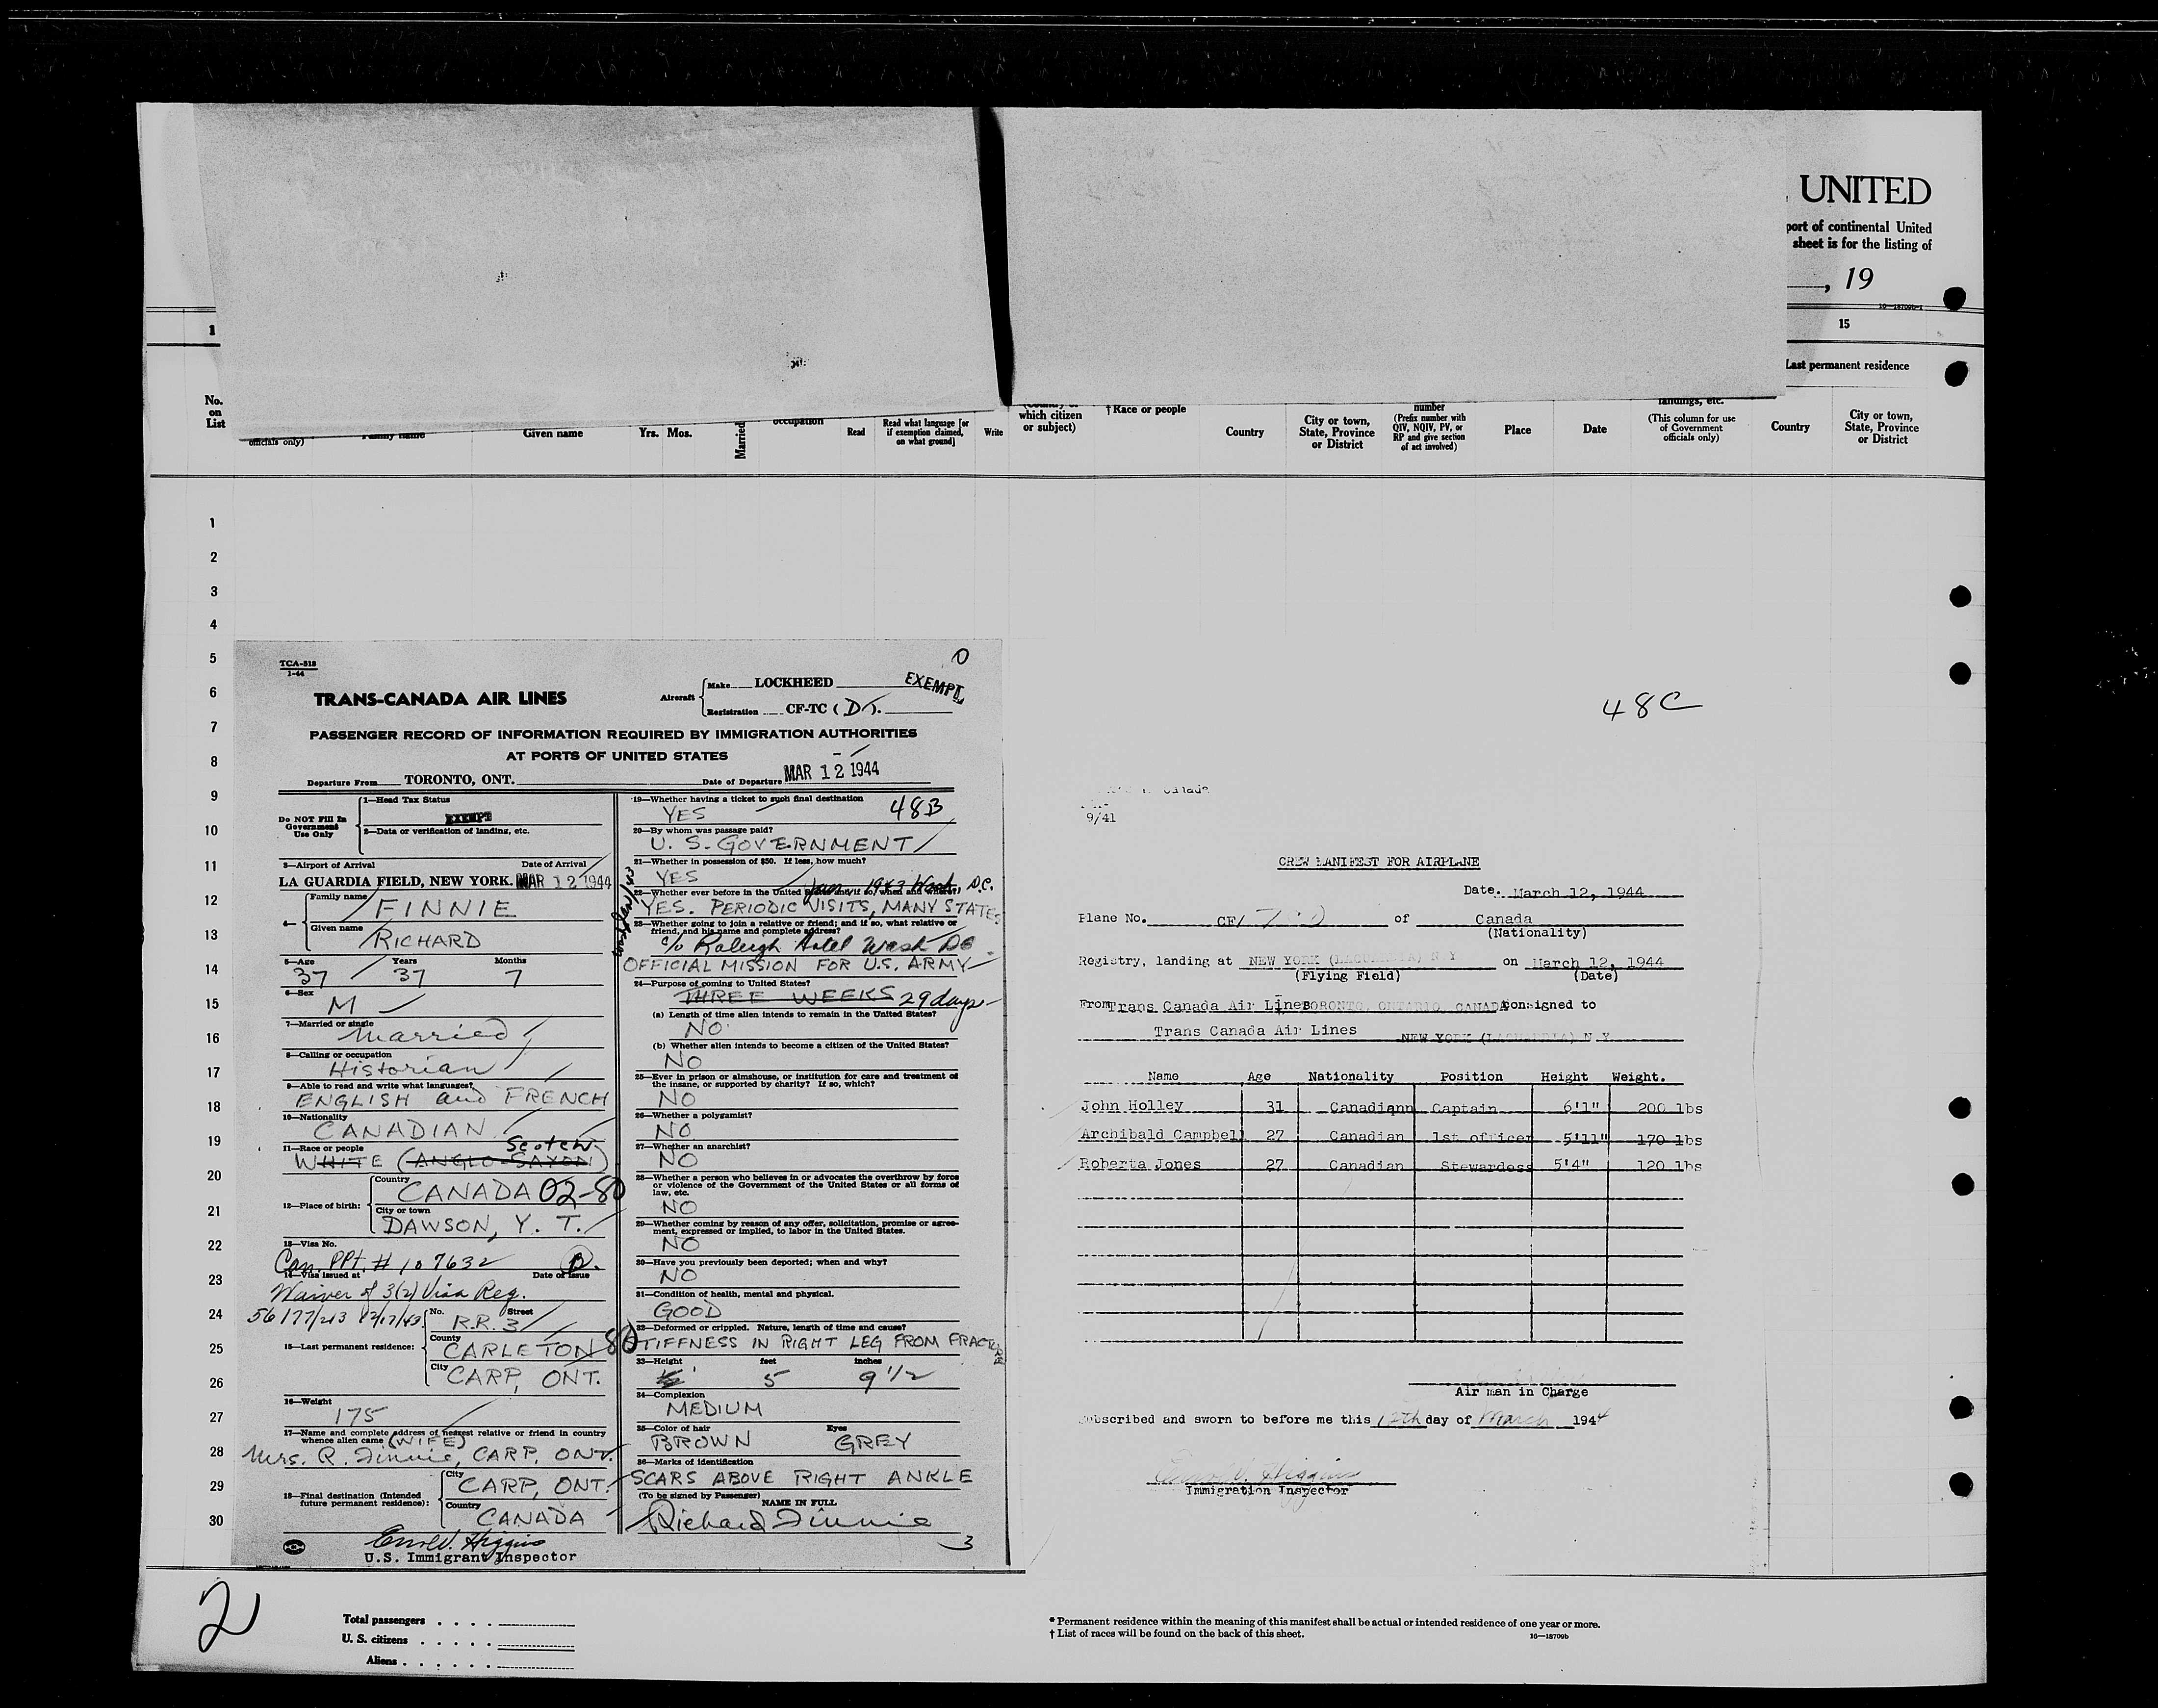 UNITED
port of continental United
sheet is for the listing of
, 19
16—18709b-1
1
15
Last permanent residence
No.
on
List
officials only)
Family name
Given name
Yrs. Mos.
Married
occupation
Read
Read what language [or
if exemption claimed,
on what ground]
Write
which citizen
or subject)
†Race or people
Country
City or town,
State, Province
or District
number
(Prefix number with
QIV, NQIV, PV, or
RP and give section
of act involved)
Place
Date
landings, etc.
(This column for use
of Government
officials only)
Country
City or town,
State, Province
or District
1
2
3
4
5
6
7
8
9
10
11
12
13
14
15
16
17
18
19
20
21
22
23
24
25
26
27
28
29
30
TCA-518
1-44
0
TRANS-CANADA AIR LINES
Aircraft
Make LOCKHEED
EXEMPT
Registration CF-TC (D).
PASSENGER RECORD OF INFORMATION REQUIRED BY IMMIGRATION AUTHORITIES
AT PORTS OF UNITED STATES
Departure From TORONTO, ONT. Date of Departure MAR 12 1944
Do NOT Fill In
Government
Use Only
1—Head Tax Status
EXEMPT
2—Data or verification of landing, etc.
3—Airport of Arrival Date of Arrival
LA GUARDIA FIELD, NEW YORK. MAR 12 1944
4—
Family name
FINNIE
Given name
RICHARD
5—Age Years Months
37 37 7
6—Sex
M
7—Married or single
Married
8—Calling or occupation
Historian
9—Able to read and write what languages?
ENGLISH and FRENCH
10—Nationality
CANADIAN
11—Race or people
Scotch
WHITE (ANGLO-SAXON)
12—Place of birth:
Country
CANADA 02-80
City or town
DAWSON, Y. T.
13—Visa No.
Can. PPt. # 107632
14—Visa issued at Date of Issue
Waiver of 3(2) Visa Reg.
56177/213 12/17/43
15—Last permanent residence:
No. Street
R.R. 3
County
CARLETON 80
City
CARP, ONT.
16—Weight
175
17—Name and complete address of nearest relative or friend in country
whence alien came (WIFE)
Mrs. R. Finnie, CARP, ONT.
18—Final destination (Intended
future permanent residence):
City
CARP, ONT.
Country
CANADA
Errol V. Higgins
U.S. Immigrant Inspector
19—Whether having a ticket to such final destination
YES 48B
20—By whom was passage paid?
U. S. GOVERNMENT
21—Whether in possession of $50. If less, how much?
YES
Jan. 1943 Wash, D.C.
22—Whether ever before in the United States and if so, when and where?
YES. PERIODIC VISITS, MANY STATES
23—Whether going to join a relative or friend; and if so, what relative or
friend, and his name and complete address?
c/o Raleigh Hotel Wash DC
OFFICIAL MISSION FOR U.S. ARMY
24—Purpose of coming to United States?
THREE WEEKS 29 days
(a) Length of time alien intends to remain in the United States?
NO
(b) Whether alien intends to become a citizen of the United States?
NO
25—Ever in prison or almshouse, or institution for care and treatment of
the insane, or supported by charity? If so, which?
NO
26—Whether a polygamist?
NO
27—Whether an anarchist?
NO
28—Whether a person who believes in or advocates the overthrow by force
or violence of the Government of the United States or all forms of
law, etc.
NO
29—Whether coming by reason of any offer, solicitation, promise or agree-
ment, expressed or implied, to labor in the United States.
NO
30—Have you previously been deported; when and why?
NO
31—Condition of health, mental and physical.
GOOD
32—Deformed or crippled. Nature, length of time and cause?
STIFFNESS IN RIGHT LEG FROM FRACTURE
33—Height feet inches
5 9 1/2
34—Complexion
MEDIUM
35—Color of hair Eyes
BROWN GREY
36—Marks of identification
SCARS ABOVE RIGHT ANKLE
(To be signed by Passenger) NAME IN FULL
Richard Finnie
3
48C
9/41
CREW MANIFEST FOR AIRPLANE
Date. March 12, 1944
Plane No. CF/ of Canada
(Nationality)
Registry, landing at NEW YORK (LAGUARDIA) N Y on March 12, 1944
(Flying Field) (Date)
From Trans Canada Air Lines TORONTO, ONTARIO, CANADA consigned to
Trans Canada Air Lines NEW YORK (LAGUARDIA) N.Y.
Name Age Nationality Position Height Weight.
John Holley 31 Canadiann Captain 6'1" 200 lbs
Archibald Campbell 27 Canadian 1st officer 5'11" 170 lbs
Roberta Jones 27 Canadian Stewardess 5'4" 120 lbs
Air man in Charge
Subscribed and sworn to before me this 12th day of March 1944
Errol V. Higgins
Immigration Inspector
2
Total passengers
U. S. citizens
Aliens
* Permanent residence within the meaning of this manifest shall be actual or intended residence of one year or more.
† List of races will be found on the back of this sheet.
16—18709b